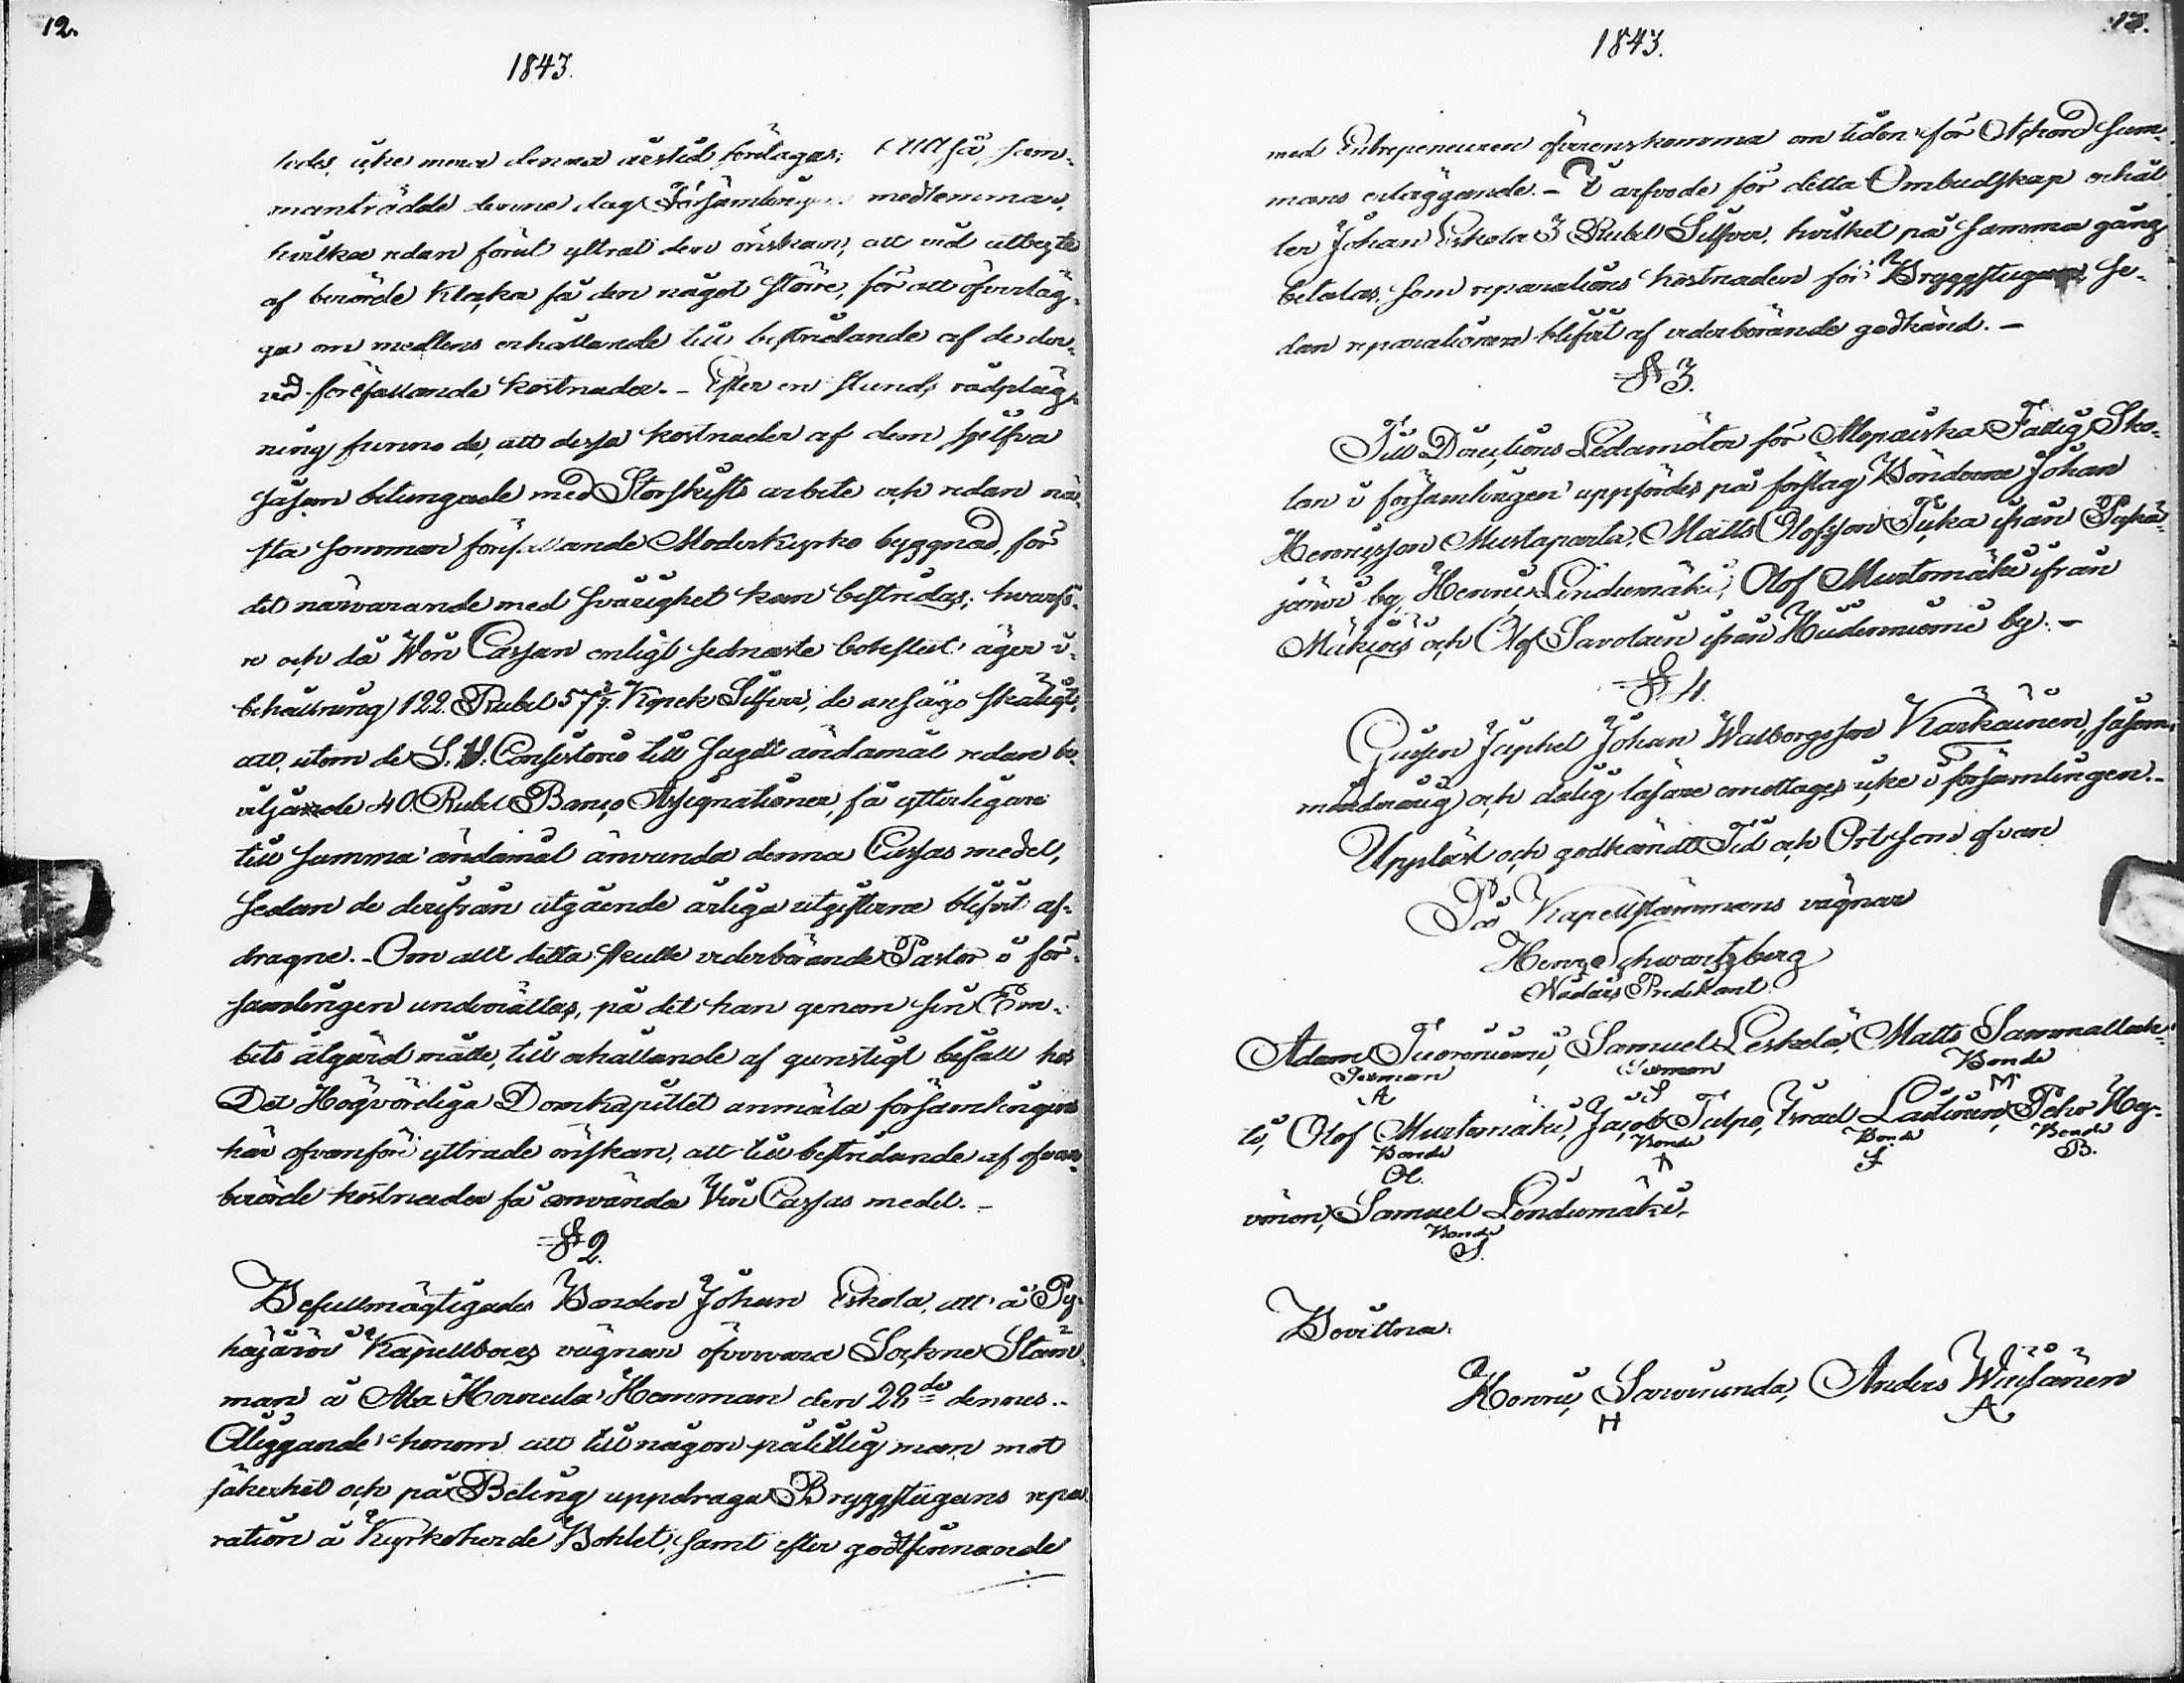 12.
1843.
ledes icke mera denna årstid företagas; Alltså sam-
manträdde denne dag Församlingens medlemmar,
hvilka redan förut yttrat den önskan, att vid utbyte
af berörde Klocka få den något större, för att öfverläg-
ga om medlens erhållande till bestridande af de der-
vid förefallande kostnader. - Efter en stunds rådpläg-
ning funno de, att dessa kostnader af dem sjelfva
såsom betungade med Storskifts arbete och redan nä-
sta sommar förefallande Moderkyrko byggnad, för
det närvarande med svårighet kan bestridas; hvarfö-
re och då Win Cassan enligt sednaste bokslut äger i
behållning 122. Rubel 57 1/7. Kopek Silfver, de ansågo skäligt,
att, utom de S. V. Consistorio till sagdt ändamål redan be-
viljande 40. Rubel Banco Assignationer, få ytterligare
till samma ändamål använda denna Cassas medel,
sedan de derifrån utgående årliga utgifterna blifvit af-
dragne. - Om allt detta skulle vederbörande Pastor i för-
samlingen underrättas, på det han genom sin Em-
bets åtgärd måtte, till erhållande af gunstigt bifall hos
Det Högvördiga Domkapitlet anmäla församlingens
här ofvanföre yttrade önskan, att till bestridande af ofvan-
berörde kostnader få använda Vin Cassas medel. -
§ 2.
Befullmägtigades Bonden Johan Eskola, att å Py-
häjärvi Kapellboers vägnar öfvervara Sockne Stäm-
man å Ala Honcula Hemman den 28de dennes. -
Åliggande honom att till någon pålitlig man mot
säkerhet och på Beting uppdraga Bryggstugans repa-
ration å Kyrkoherde Bohlet, samt efter godtfinnande
13.
1843.
med Entrepeneuren öfverenskomma om tiden för Ackord sum-
mans erläggande. - I arfvode för detta Ombudskap erhål-
ler Johan Eskola 3 Rubel Silfver, hvilket på samma gång
betalas, som reparations kostnaden för Bryggstugan se-
dan reparationen blifvit af vederbörande godkänd. -
§ 3.
Till Directions Ledamöter för Alopaeiska Fattig Sko-
lan i församlingen uppfördes på förslag Bönderne Johan
Henricsson Mustaparta, Matts Olofsson Tuka ifrån Pyhä-
järvi by, Henric Lindumäki, Olof Murtomäki ifrån
Mäkiöis och Olof Savolain ifrån Hiidenniemi by. -
§ 4.
Gussen Japhet Johan Walborgsson Karkainen, såsom
minderårig och dålig läsare emottages icke i församlingen. -
Uppläst och godkändt Tid och Ort som ofvan
På Kapellstämmans vägnar
Henric Schwartzberg
Nådårs Predikant.
Adam Tuoronieemi, Samuel Leskelä, Matts Sammallah-
Sexman Sexman Bonde
A S M
ti, Olof Murtomäki, Jacob Tulpo, Israel Laitinen, Pehr Hey-
Bonde Bonde Bonde Bonde
Ol. I B.
vinen, Samuel Lendumäki,
Bonde
S.
Bevittna:
Henric Sarvirinda, Anders Wiisänen
H A